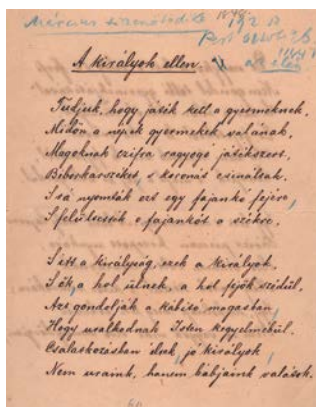 Március tizenötödike
A királyok ellen.
Tudjuk, hogy játék kell a gyermeknek,
Midőn a népek gyermekek valának,
Magoknak czifra ragyogó játékszert,
Biborkarszéket, s koronát csináltak.
S rá nyomták ezt egy fajankó fejére,
S felültették e fajankót a székre.
S itt a királyság, ezek a királyok,
S ők, a hol ülnek, a hol fejök szédül,
Azt gondolják a kábító magasban,
Hogy uralkodnak Isten kegyelméből.
Csalatkozásban éltek, jó királyok,
Nem uraink, hanem bábjaink valátok.